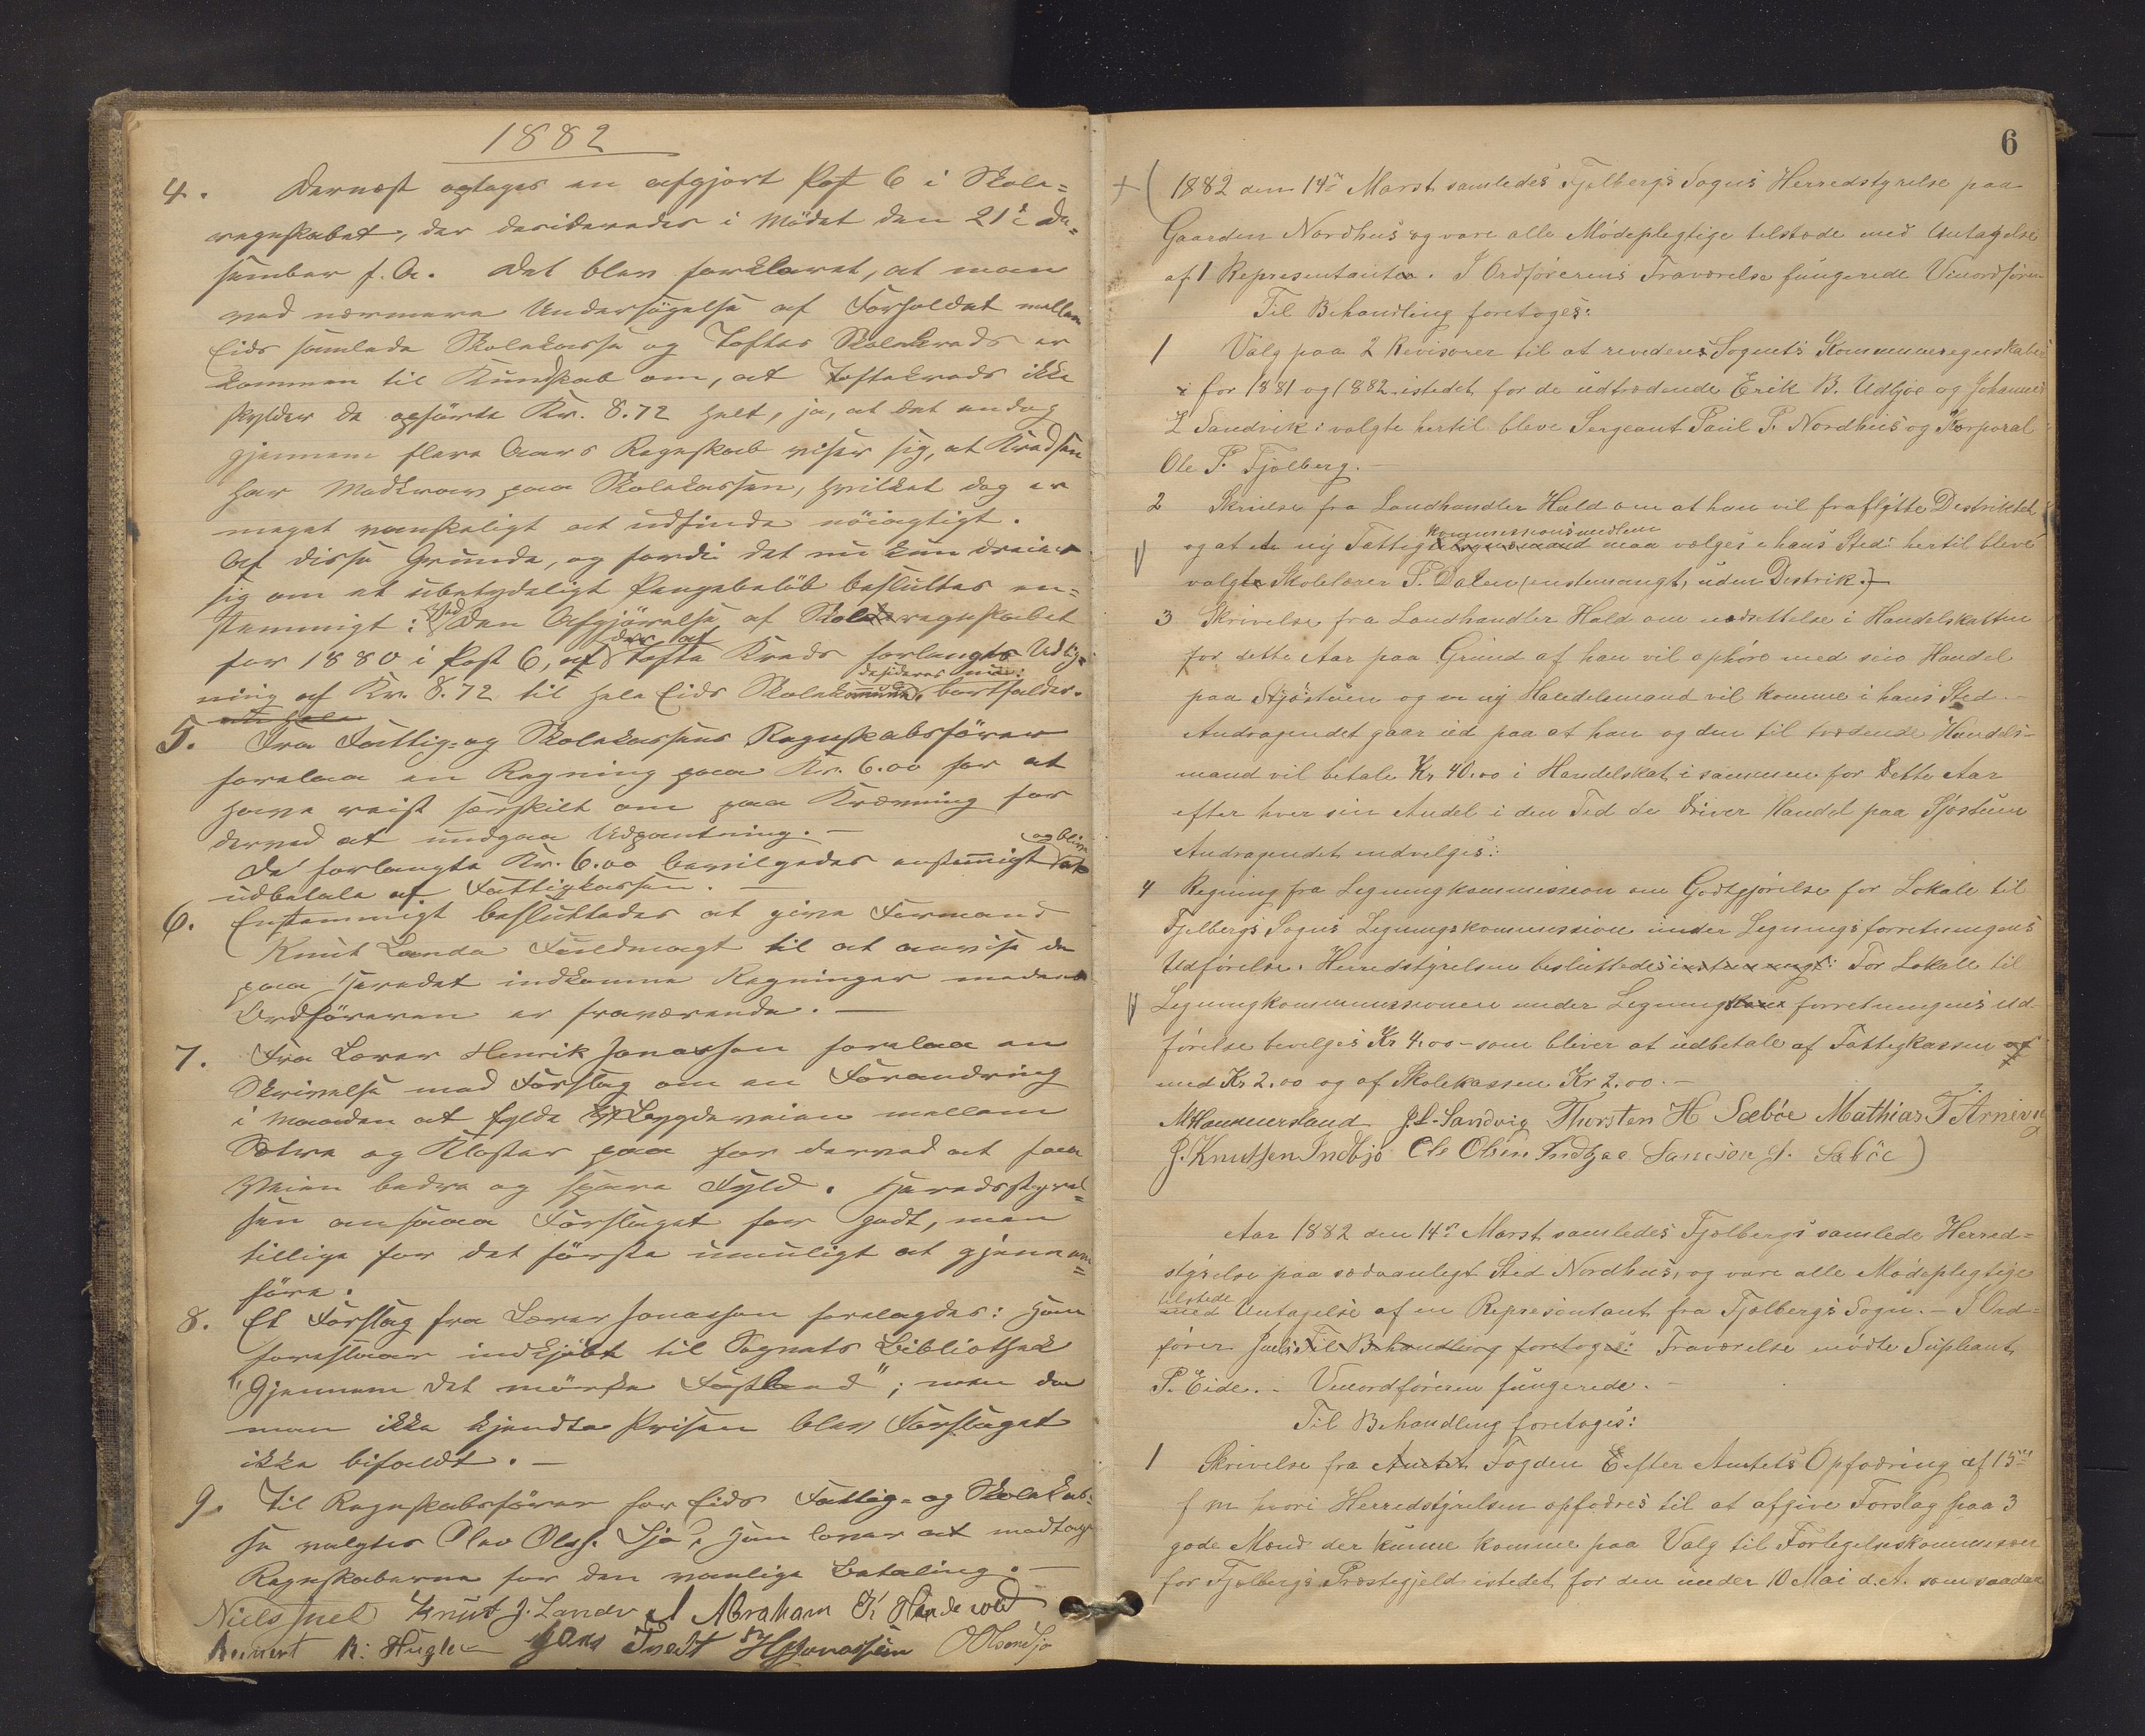 1882
4. Dernæst optoges en afgjort Post 6 i Skole=
regnskabet, der desideredes i Mödet den 21de De=
sember f. A. Det blev forklaret, at man
ved nærmere Undersögelse af Forholdet mellem
Eids samlede Skolekasse og Toftes Skolekreds er
kommen til Kundskab om, at Toftekreds ikke
skylder de opförte Kr. 8.72 helt, ja, at det endog
gjennem flere Aars Regnskab viser sig, at Kredsen
har Modkrav paa Skolekassen, hvilket dog er
meget vanskeligt at udfinde nöiagtigt.
Af disse Grunde, og fordi det nu kun dreier
sig om et ubetydeligt Pengebelöb besluttes en=
stemmigt: Ved den Afgjörelse af Skoleregnskabet
for 1880 i Post 6, der af Tofte Kreds forlanges Udlig=
ning af Kr. 8.72 til hele Eids Skolekommune, bortfalder.
5. Fra Fattig- og Skolekassens Regnskabsförer
forelaa en Regning paa Kr. 6.00 for at
have reist særskilt om paa Krævning for
derved at undgaa Udpantning. —
De forlangte Kr. 6.00 bevilgedes enstemmigt og bliver at
udbetale af Fattigkassen. —
6. Enstemmigt besluttedes at give Formand
Knut Landa Fuldmagt til at anvise de
paa Heredet indkomne Regninger medens
Ordföreren er fraværende. —
7. Fra Lærer Henrik Jonassen forelaa en
Skrivelse med Forslag om en Forandring
i Maaden at fylde Bygdeveien mellem
Sætre og Kloster paa for derved at faa
Veien bedre og spare Fyld. Heredsstyrel=
sen ansaaa Forslaget for godt, men
tillige for det förste umuligt at gjennem=
före.
8. Et Forslag fra Lærer Jonassen forelagdes: Han
foreslaar indkjöbt til Sognets Bibliothek
"Gjennem det mörke Fastland"; men da
man ikke kjendte Prisen blev Forslaget
ikke bifaldt. —
9. Til Regnskabsförer for Eids Fattig- og Skolekas=
se valgtes Olav Ols. Sjo. Han lover at modtage
Regnskaberne for den vanlige Betaling. —
Niels Juel Knut J. Landa Abraham K. Handeland
Reinert R: Hugle Jens Tvedt H Jonassen O Olsen Sjo
6
1882 den 14de Marst samledes Fjelbergs Sogns Herredstyrelse paa
Gaarden Nordhus og vare alle Mødeplegtige tilstede med Untagelse
af 1 Representant. I Ordførerens Fraværelse fungerede Viseordføre
Til Behandling foretoges:
1 Valg paa 2 Revisorer til at revidere Sognets Kommuneregnskaber
for 1881 og 1882 istedet for de udtrædende Erik B. Udbjoe og Johannes
L Sandvik: valgte hertil bleve Sergeant Paul P. Nordhus og Korporal
Ole P. Fjelberg. —
2 Skrivelse fra Landhandler Hald om at han vil fraflytte Destriktet
og at en ny Fattigkommissionsmedlem maa vælges i hans Sted: hertil bleve
valgt Skolelærer P. Dalen (enstemmigt, uden Destrik.)
3 Skrivelse fra Landhandler Hald om nedsettelse i Handelskatten
for dette Aar paa Grund af han vil ophøre med sin Handel
paa Sjøstuen og en ny Handelsmand vil komme i hans Sted. —
Andragendet gaar ud paa at han og den til trædende Handels-
mand vil betale Kr 40.00 i Handelskat i sammen for dette Aar
efter hver sin Andel i den Tid de driver Handel paa Sjøstuen
Andragendet indvelges:
4 Regning fra Legningkommission om Godtgjørelse for Lokale til
Fjelbergs Sogns Legningskommission under Legningsforretningens
Udførelse. Herredstyrelsen besluttedes enstemmigt: For Lokale til
Legningkommissionen under Legnings forretningens ud-
førelse bevilges Kr 4.00 - som bliver at udbetale af Fattigkassen
med Kr 2.00 og af Skolekassen Kr 2.00. —
M Hammersland J. L. Sandvig Thorsten H Sæbøe Mathias T. Arnevig
J. Knutsen Indbjo Ole Olsen Indbjoe Samson J. Sæbøe)
Aar 1882 den 14de Marst samledes Fjelbergs samlede Herred=
styrelse paa sedvanligt Sted Nordhus, og vare alle Mødeplegtige
tilstede med Untagelse af en Representant fra Fjelbergs Sogn. — I Ord=
fører Juels Til Behandling foretoges: Fraværelse mødte Supleant
P. Eide. — Viseordføreren fungerede. —
Til Behandling foretoges:
1 Skrivelse fra Amtet Fogden Eefter Amtets Opfodring af 15de
f m hvori Herredstyrelsen opfodres til at afgive Forslag paa 3
gode Mænd der kunne komme paa Valg til Forlegelseskommissær
for Fjelbergs Præstegjeld istedet for den under 10 Mai d. A. som saadan